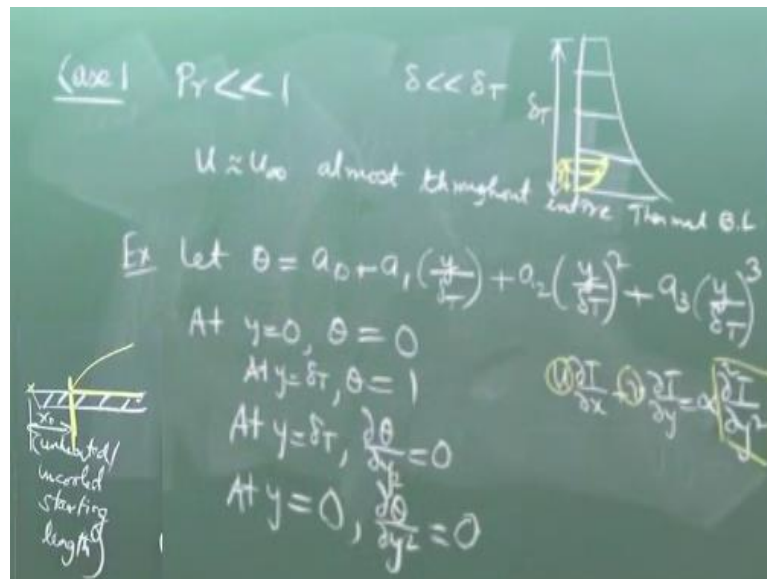 Case 1 Pr << 1 δ << δT
δT
U ≈ U∞ almost throughout entire Thermal B.L
Ex Let θ = a0 + a1 (y/δT) + a2 (y/δT)² + a3 (y/δT)³
At y=0, θ = 0
At y=δT, θ = 1
At y=δT, ∂θ/∂y = 0
At y=0, ∂²θ/∂y² = 0
u ∂T/∂x + v ∂T/∂y = α ∂²T/∂y²
x0
(unheated/
uncooled
starting
length)